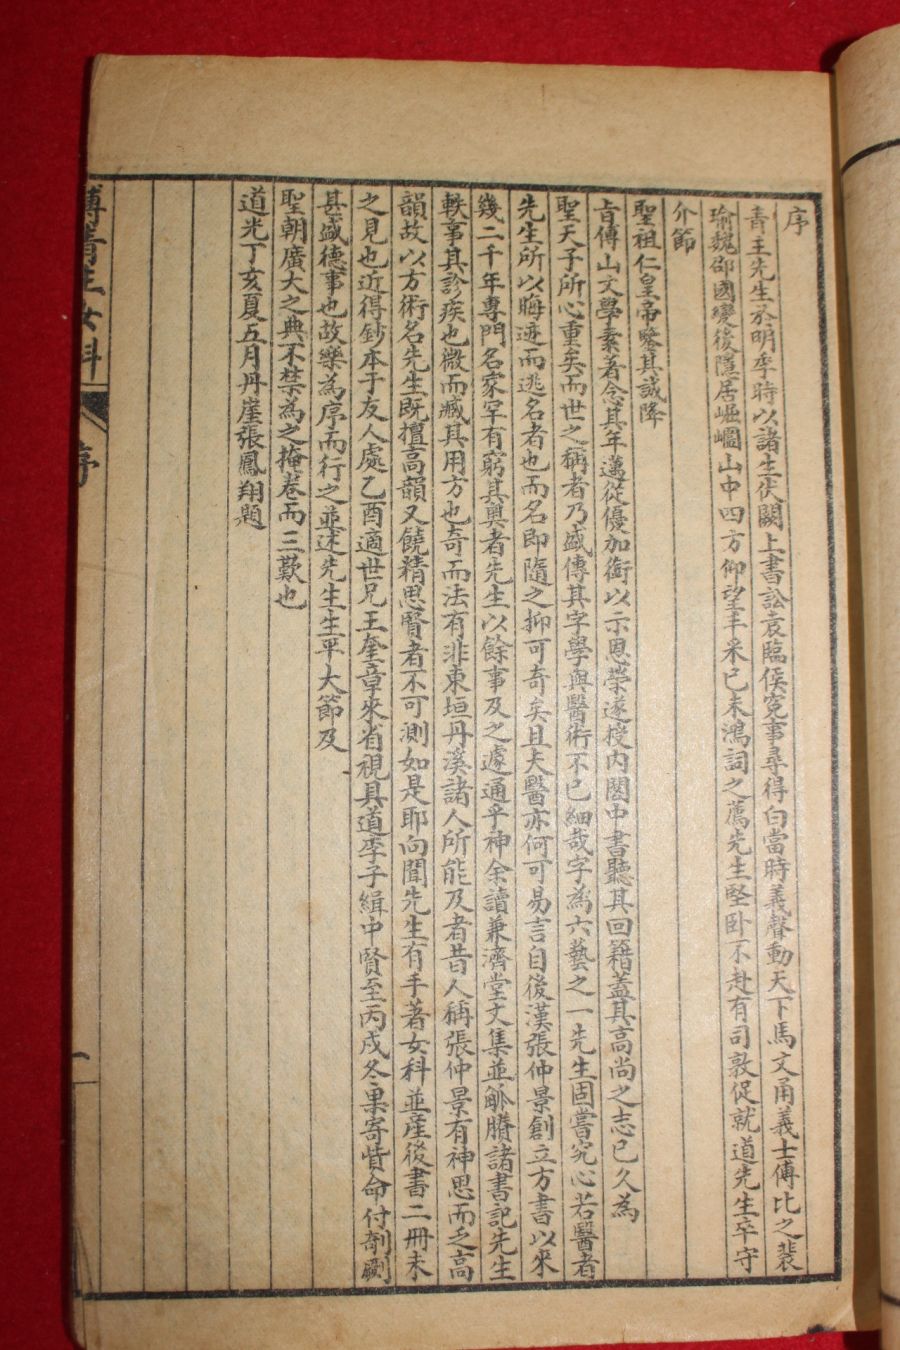 序
青主先生於明季時以諸生伏闕上書訟袁臨侯冤事尋得白當時義聲動天下馬文甬義士傅比之裴
瑜魏邵國變後隱居崛𡺚山中四方仰望丰采已未鴻詞之薦先生堅卧不赴有司敦促就道先生卒守
介節
聖祖仁皇帝鑒其誠降
旨傅山文學素著念其年邁從優加銜以示恩榮遂授内閣中書聽其回籍蓋其高尚之志已久為
聖天子所心重矣而世之稱者乃盛傳其字學與醫術不已細哉字為六藝之一先生固嘗究心若醫者
先生所以晦迹而逃名者也而名即隨之抑可奇矣且夫醫亦何可易言自後漢張仲景創立方書以來
幾二千年專門名家罕有窮其奥者先生以餘事及之遽通乎神余讀兼濟堂文集並觚賸諸書記先生
軼事其診疾也微而臧其用方也奇而法有非東垣丹溪諸人所能及者昔人稱張仲景有神思而乏高
韻故以方術名先生既擅高韻又饒精思賢者不可測如是耶向聞先生有手著女科並産後書二冊未
之見也近得鈔本于友人處乙酉適世兄王奎章來省視具道李子緝中賢至丙戌冬果寄貲命付剞劂
甚盛德事也故樂為序而行之並述先生生平大節及
聖朝廣大之典不禁為之掩卷而三歎也
道光丁亥夏五月丹崖張鳳翔題
傅青主女科
序
一